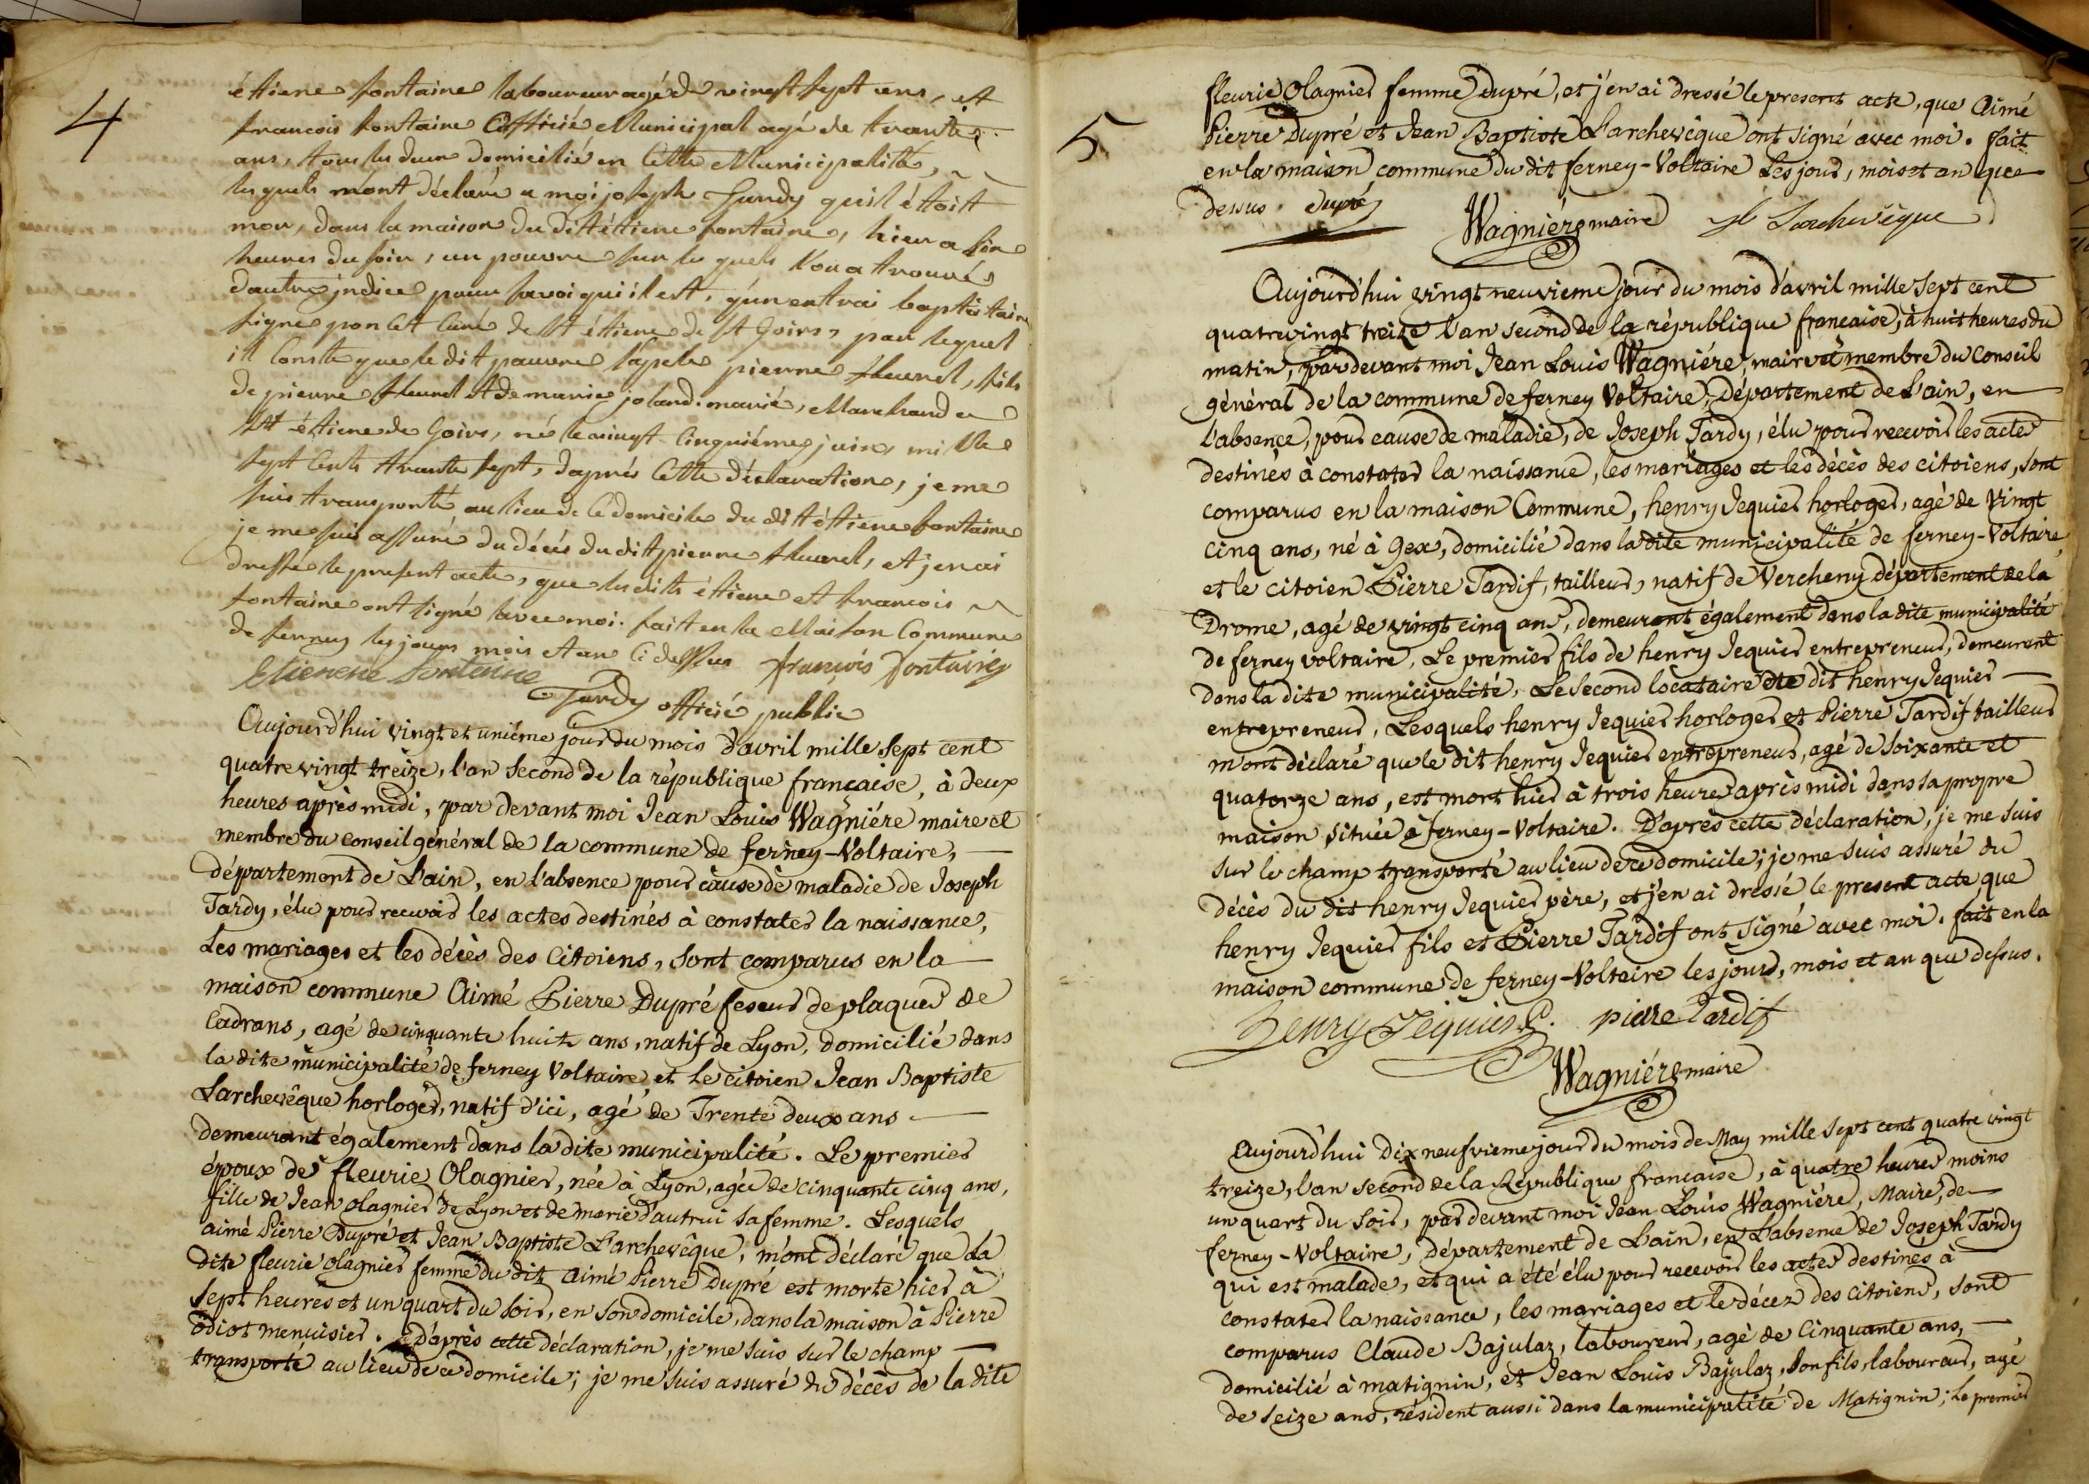 4
étiene fontaine laboureur agé de vingt sept ans, et
francois fontaine officié Municipal agé de trante
ans, tous les deux domicilié en Cette Municipalité,
lesquels m'ont déclaré a moi joseph Tardy quil étoit
mor, dans la maison du dit étiene fontaine, hier a six
heures du soir, un pauvre sur lequels l'on a trouvé
d'autre jndice pour savoi qui il est, q'un extrai baptistaire
signe par le curé de st étiene de st Goirs, par lequel
il Conste que le dit pauvre sapele pierre fleuret, fils
de pierre fleuret et de marie joland. marié, Marchand a
st étiene de Goirs, né le vingt Cinquiéme juin mille
sept Cents trante sept, d'aprés Cette déclaration, je me
suis transporté au lieu de Ce domicile du dit étiene fontaine
je me suis assuré du décés du dit pierre fleuret, et jenai
dressé le present acte, que lesdits étiene et francois
fontaine ont signé avec moi. fait en la Maison Commune
de ferney les jours mois et an Ci dessus
Etienene fontaine françois fontaine
Tardy officié public
Aujourd'hui vingt et unième jour du mois d'avril mille sept cent
quatre vingt treize, l'an second de la république francaise, à deux
heures après midi, par devant moi Jean Louis Wagniére maire et
membre du conseil général de la commune de ferney-Voltaire,
département de L'ain, en l'absence pour cause de maladie de Joseph
Tardy, élu pour recevoir les actes destinés à constater la naissance,
Les mariages et les décès des Citoiens, sont comparus en la
maison commune Aimé Pierre Dupré feseur de plaques de
Cadrans, agé de cinquante huit ans, natif de Lyon, domicilié dans
la dite municipalité de ferney Voltaire, et Le citoien Jean Baptiste
Larchevêque horloger, natif d'ici, agé de Trente deux ans
demeurant également dans la dite municipalité. Le premier
époux de fleurie Olagnier, née à Lyon, agée de cinquante cinq ans,
fille de Jean olagnier de Lyon et de marie d'autrui sa femme. Lesquels
aimé Pierre Dupré et Jean Baptiste L'archevêque, m'ont déclaré que La
dite fleurie olagnier femme du dit aimé Pierre Dupré est morte hier à
sept heures et un quart du soir, en son domicile, dans la maison à Pierre
odiot menuisier. D'après cette déclaration, je me suis sur le champ
transporté au lieu de ce domicile; je me suis assuré du décès de la dite
5
fleurie Olagnier femme Dupré, et j'en ai dressé le present acte, que Aimé
Pierre Dupré et Jean Baptiste L'archevêque ont signé avec moi. fait
en la maison commune du dit ferney-Voltaire Les jour, mois et an que
dessus. Dupré Wagniére maire L'archevêque
Aujourd'hui vingt neuvieme jour du mois d'avril mille sept cent
quatrevingt treize l'an second de la république francaise, à huit heures du
matin, par devant moi Jean Louis Wagniére, maire et membre du Conseil
général de la commune de ferney Voltaire, Département de L'ain, en
l'absence, pour cause de maladie, de Joseph Tardy, élu pour recevoir les actes
destinés à constater la naissance, les mariages et les décès des citoiens, sont
comparus en la maison Commune, henry Jequier horloger, agé de vingt
cinq ans, né à Gex, domicilié dans la dite municipalité de ferney-Voltaire,
et le citoien Pierre Tardif, tailleur, natif de Vercheny département de la
Drome, agé de vingt cinq ans, demeurant également dans la dite municipalité
de ferney voltaire, Le premier fils de henry Jequier entrepreneur, demeurant
dans la dite municipalité, Le second locataire du dit henry Jequier
entrepreneur, Lesquels henry Jequier horloger et Pierre Tardif tailleur
m'ont déclaré que le dit henry Jequier entrepreneur, agé de soixante et
quatorze ans, est mort hier à trois heures après midi dans sa propre
maison située à ferney-Voltaire. D'après cette déclaration, je me suis
sur le champ transporté au lieu de ce domicile; je me suis assuré du
décès du dit henry Jequier père, et j'en ai dressé le present acte que
henry Jequier fils et Pierre Tardif ont signé avec moi. fait en la
maison commune de ferney-Voltaire les jour, mois et an que dessus.
Henry Jequier pierre Tardif
Wagniére maire
Aujourd'hui Dix neufvieme jour du mois de May mille sept cent quatre vingt
treize, l'an second de la République francaise, à quatre heures moins
un quart du soir, par devant moi Jean Louis Wagniére, Maire, de
ferney-Voltaire, Département de L'ain, en L'absence de Joseph Tardy
qui est malade, et qui a été élu pour recevoir les actes destinés à
constater la naissance, les mariages et le décez des citoiens, sont
comparus Claude Bajulaz, laboureur, agé de Cinquante ans,
domicilié à matignin, et Jean Louis Bajulaz, son fils, laboureur, agé
de seize ans, résident aussi dans la municipalité de Matignin; Le premier